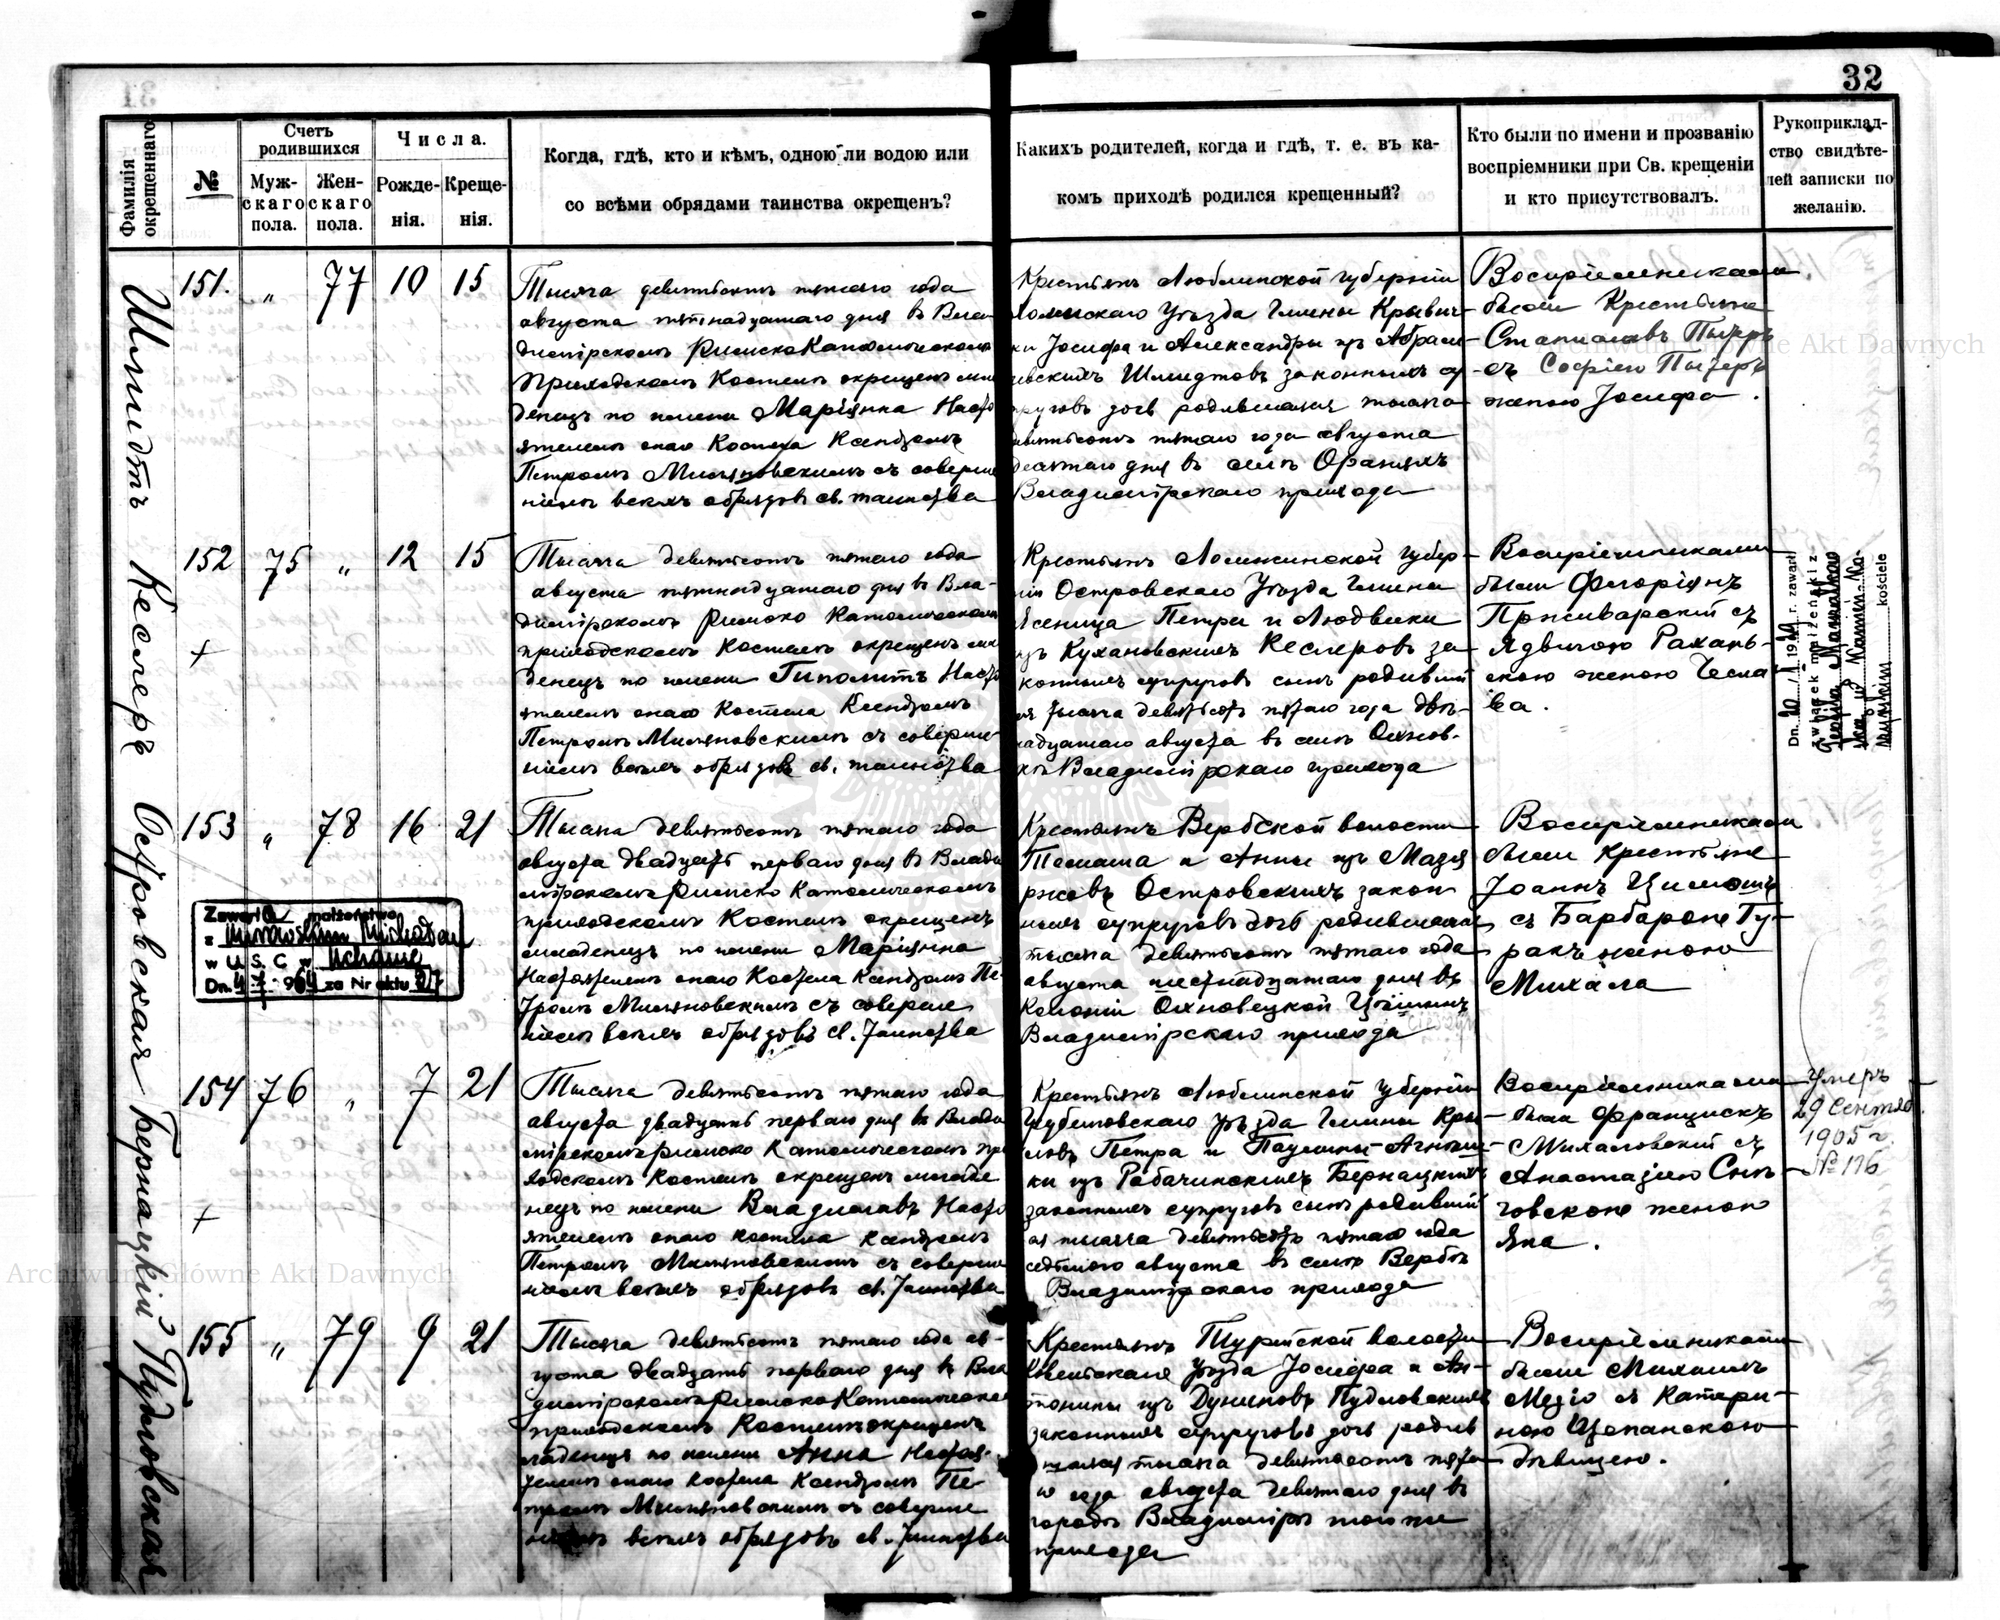 32
Фамилія окрещеннаго.
№
Счетъ родившихся
Муж-скаго пола.
Жен-скаго пола.
Числа.
Рожде-нія.
Креще-нія.
Когда, гдѣ, кто и кѣмъ, одною ли водою или
со всѣми обрядами таинства окрещенъ?
Какихъ родителей, когда и гдѣ, т. е. въ ка-
комъ приходѣ родился крещенный?
Кто были по имени и прозванію
воспріемники при Св. крещеніи
и кто присутствовалъ.
Рукоприклад-
ство свидѣте-
лей записки по
желанію.
Шмидтъ
151. " 77 10 15
Тысяча девятьсотъ пятаго года
августа пятнадцатаго дня въ Вла-
димірскомъ Римско Католическомъ
Приходскомъ Костелѣ окрещенъ мла
денецъ по имени Маріянна Насто
ятелемъ онаго Костела Ксендзомъ
Петромъ Миляновскимъ съ соверше
ніемъ всѣхъ обрядовъ св. таинства
Крестьянъ Люблинской губерніи
Холмскаго уѣзда Гмины Кривич-
ки Іосифа и Александры изъ Абрам-
евскихъ Шмидтовъ законныхъ су-
пруговъ дочь родившаяся тысяча
девятьсотъ пятаго года августа
десятаго дня въ селѣ Ораняхъ
Владимірскаго прихода
Воспріемниками
были Крестьяне
Станиславъ
съ Софіею
женою Іосифа.
Кеслеръ
152 75 " 12 15
Тысяча девятьсотъ пятаго года
августа пятнадцатаго дня въ Вла-
димірскомъ Римско Католическомъ
приходскомъ Костелѣ окрещенъ мла
денецъ по имени Гиполитъ Насто
ятелемъ онаго Костела Ксендзомъ
Петромъ Миляновскимъ съ соверше
ніемъ всѣхъ обрядовъ св. таинства
Крестьянъ Ломжинской губер-
ніи Островскаго Уѣзда Гмины
Ясеница Петра и Людвики
изъ Кухановскихъ Кеслеровъ за-
конныхъ супруговъ сынъ родивший
ся тысяча девятьсотъ пятаго года двѣ-
надцатаго августа въ селѣ Охнов-
кѣ Владимірскаго прихода
Воспріемниками
были Флоріянъ
Пживарскій съ
Ядвигою Рахань-
скою женою Чесла
ва.
Dn. 20/I 19 r. zawarł
związek małżeński z
kościele
Островская
153 " 78 16 21
Тысяча девятьсотъ пятаго года
августа двадцать перваго дня въ Влади
мірскомъ Римско Католическомъ
приходскомъ Костелѣ окрещенъ
младенецъ по имени Маріянна
Настоятелемъ онаго Костела Ксендзомъ Пе
тромъ Миляновскимъ съ соверше
ніемъ всѣхъ обрядовъ св. Таинства
Крестьянъ Вербской волости
Томаша и Анны изъ Мазу
ровъ Островскихъ закон
ныхъ супруговъ дочь родившаяся
тысяча девятьсотъ пятаго года
августа шестнадцатаго дня въ
Колоніи Охновецкой
Владимірскаго прихода
Воспріемниками
были крестьяне
Іоаннъ
съ Барбарою Гу-
ракъ женою
Михала
Zawarła małżeństwo
z
w U. S. C. w Uchanie
Dn. za Nr aktu
Бернацкій
154 76 " 7 21
Тысяча девятьсотъ пятаго года
августа двадцать перваго дня въ Влади
мірскомъ Римско Католическомъ при
ходскомъ Костелѣ окрещенъ младе
нецъ по имени Владиславъ Насто
ятелемъ онаго костела Ксендзомъ
Петромъ Миляновскимъ съ соверше
ніемъ всѣхъ обрядовъ св. Таинства
Крестьянъ Люблинской губерніи
Грубешовскаго уѣзда Гмины Кры
ловъ Петра и Паулины-Агнѣш-
ки изъ Рабачинскихъ Бернацкихъ
законныхъ супруговъ сынъ родивший
ся тысяча девятьсотъ пятаго года
седьмого августа въ селѣ Вербѣ
Владимірскаго прихода
Воспріемниками
были Францискъ
Михаловский съ
Анастазіею Сни-
говскою женою
Яна.
Умеръ
29 Сентяб.
1905 г.
№ 116
Пудловская
155 " 79 9 21
Тысяча девятьсотъ пятаго года ав-
густа двадцать перваго дня въ Вла
димірскомъ Римско Католическом
приходскомъ Костелѣ окрещенъ
младенецъ по имени Анна Настоя-
телемъ онаго костела Ксендзомъ Пе-
тромъ Миляновскимъ съ соверше
ніемъ всѣхъ обрядовъ св. Таинства
Крестьянъ Турійской волости
Ковельскаго уѣзда Іосифа и Ан-
тонины изъ Дуниновъ Пудловскихъ
законныхъ супруговъ дочь родив
шаяся тысяча девятьсотъ пята-
го года августа девятаго дня въ
городѣ Владимірѣ того же
прихода
Воспріемниками
были Михаилъ
съ Катари-
ною Щепанскою
дѣвицею.
Archiwum Główne Akt Dawnych
Archiwum Główne Akt Dawnych